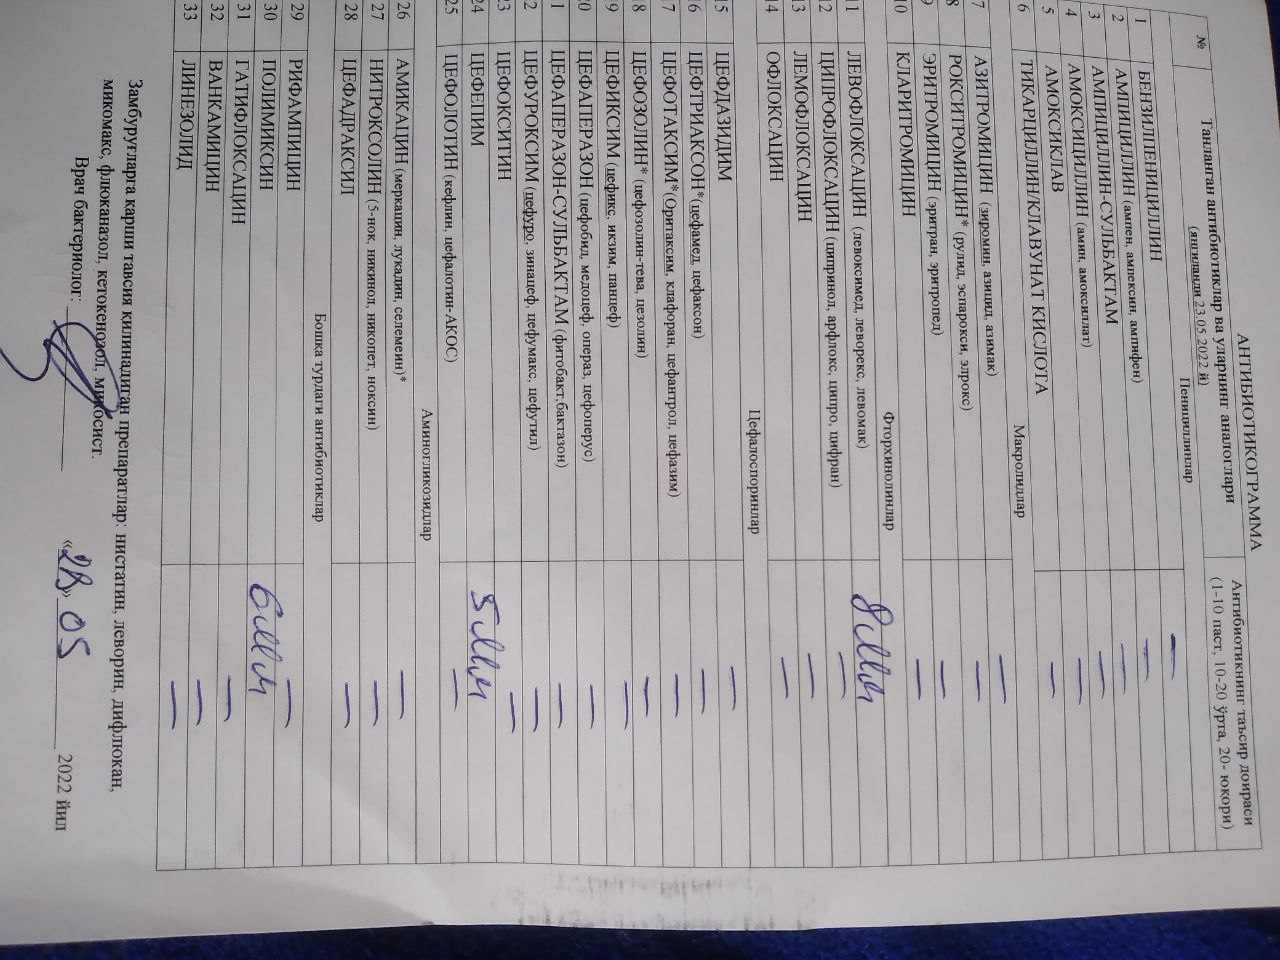 АНТИБИОТИКОГРАММА
№ Танланган антибиотиклар ва уларнинг аналоглари Антибиотикнинг таъсир доираси
(янгиланди 23.05.2022 й) (1-10 паст, 10-20 ўрта, 20- юқори)
Пенициллинлар
1 БЕНЗИЛПЕНИЦИЛЛИН —
2 АМПИЦИЛЛИН (ампен, ампексин, ампифен) —
3 АМПИЦИЛЛИН-СУЛЬБАКТАМ —
4 АМОКСИЦИЛЛИН (амин, амоксиллат) —
5 АМОКСИКЛАВ —
6 ТИКАРЦИЛЛИН/КЛАВУНАТ КИСЛОТА —
Макролидлар
7 АЗИТРОМИЦИН (зиромин, азицид, азимак) —
8 РОКСИТРОМИЦИН* (рулид, эспарокси, элрокс) —
9 ЭРИТРОМИЦИН (эритран, эритропед) —
10 КЛАРИТРОМИЦИН —
Фторхинолинлар
11 ЛЕВОФЛОКСАЦИН (левоксимед, леворекс, левомак) 8мм
12 ЦИПРОФЛОКСАЦИН (ципринол, арфлокс, ципро, цифран) —
13 ЛЕМОФЛОКСАЦИН —
14 ОФЛОКСАЦИН —
Цефалоспоринлар
15 ЦЕФДАЗИДИМ —
16 ЦЕФТРИАКСОН*(цефамед, цефаксон) —
17 ЦЕФОТАКСИМ*(Оритаксим, клафоран, цефантрол, цефазим) —
18 ЦЕФОЗОЛИН* (цефозолин-тева, цезолин) —
19 ЦЕФИКСИМ (цефикс, икзим, панцеф) —
20 ЦЕФАПЕРАЗОН (цефобид, медоцеф, операз, цефоперус) —
21 ЦЕФАПЕРАЗОН-СУЛЬБАКТАМ (фитобакт,бактазон) —
22 ЦЕФУРОКСИМ (цефуро, зинацеф, цефумакс, цефутил) —
23 ЦЕФОКСИТИН —
24 ЦЕФЕПИМ 5мм
25 ЦЕФОЛОТИН (кефлин, цефалотин-АКОС) —
Аминогликозидлар
26 АМИКАЦИН (меркацин, лукадин, селемеин)* —
27 НИТРОКСОЛИН (5-нок, никинол, никопет, ноксин) —
28 ЦЕФАДРАКСИЛ —
Бошқа турдаги антибиотиклар
29 РИФАМПИЦИН —
30 ПОЛИМИКСИН 6мм
31 ГАТИФЛОКСАЦИН —
32 ВАНКАМИЦИН —
33 ЛИНЕЗОЛИД —
Замбуруғларга қарши тавсия қилинадиган препаратлар: нистатин, леворин, дифлюкан,
микомакс, флюканазол, кетокенозол, микосист.
Врач бактериолог: «28» 05 2022 йил